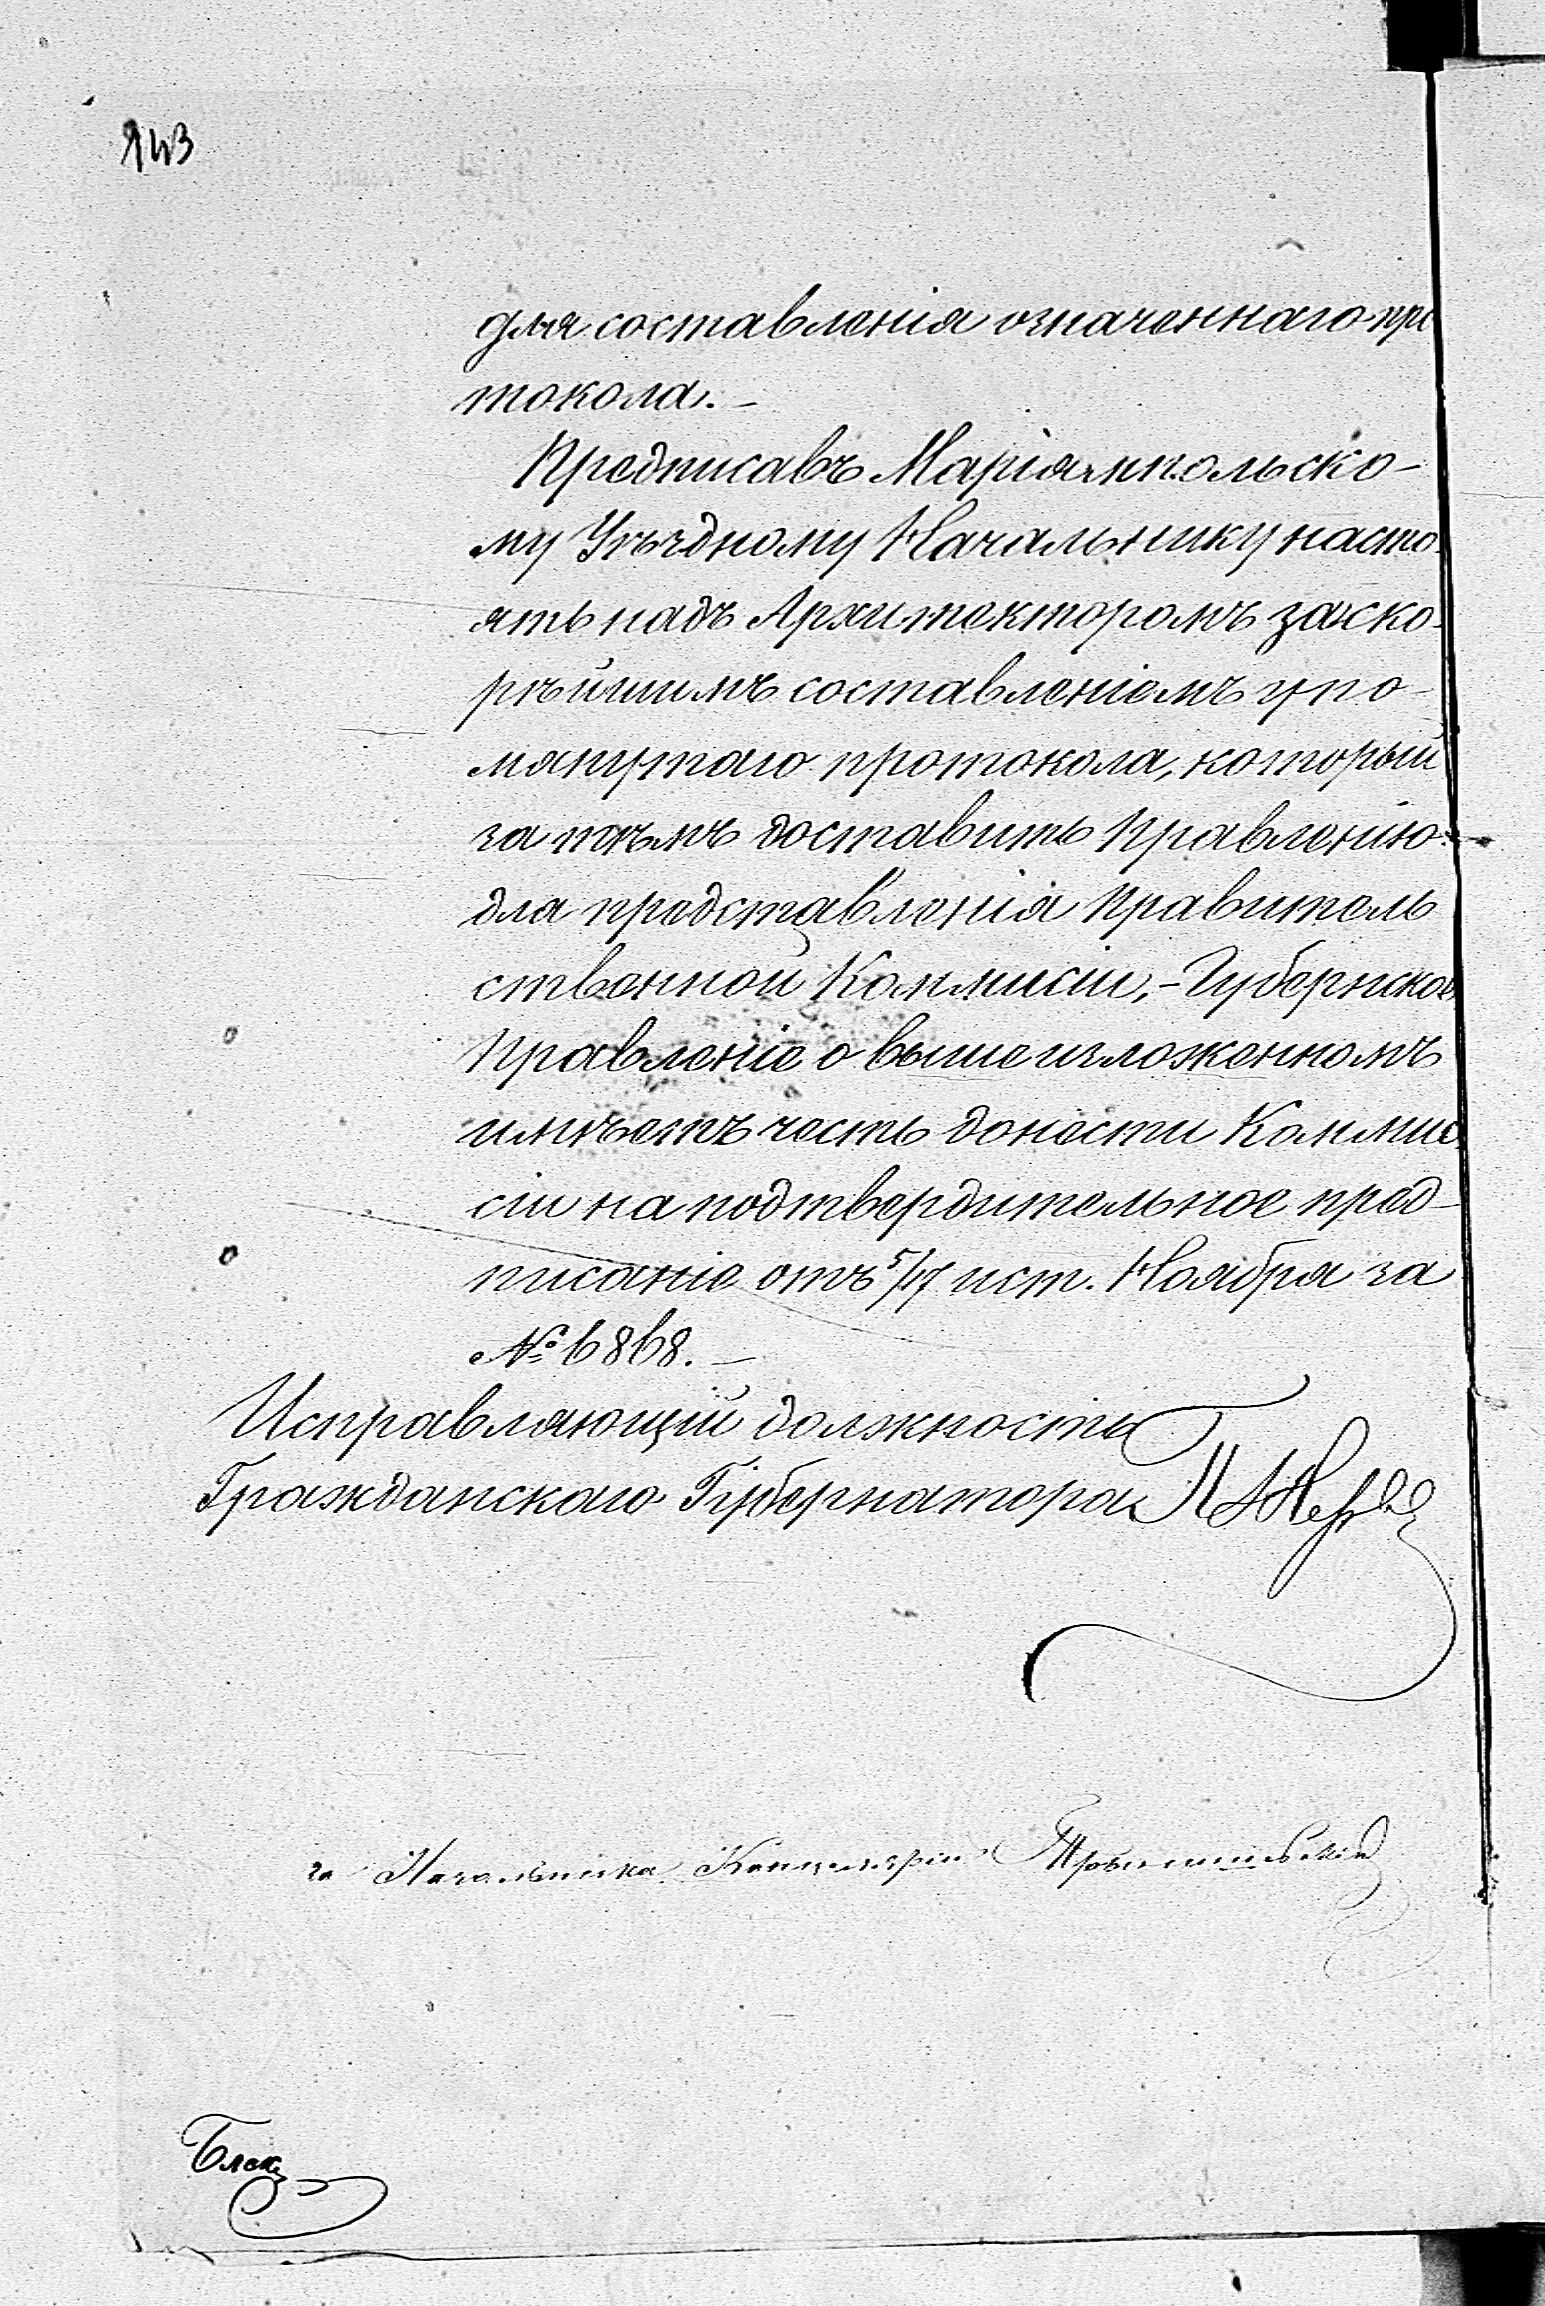 143
для составленія означеннаго про
токола.—
Предписавъ Маріямпольско-
му Уѣздному Начальнику насто-
ять надъ Архитекторомъ за ско-
рѣйшимъ составленіемъ упо-
мянутаго протокола, который
за тѣмъ доставить Правленію
для представленія Правитель
ственной Коммисіи,- Губернское
Правленіе о вышеизложенномъ
имѣетъ честь донести Коммис
сіи на подтвердительное пред-
писаніе отъ 5/17 ист. Ноября за
№ 6868.—
Исправляющій должность
Гражданскаго Губернатора
за Начальника Канцеляріи